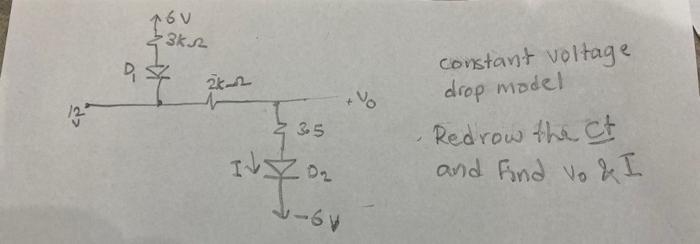 6V
3kΩ
D1
2kΩ
12V
+Vo
3.5
I
D2
-6V
constant voltage
drop model
Redrow the Ct
and Find Vo & I